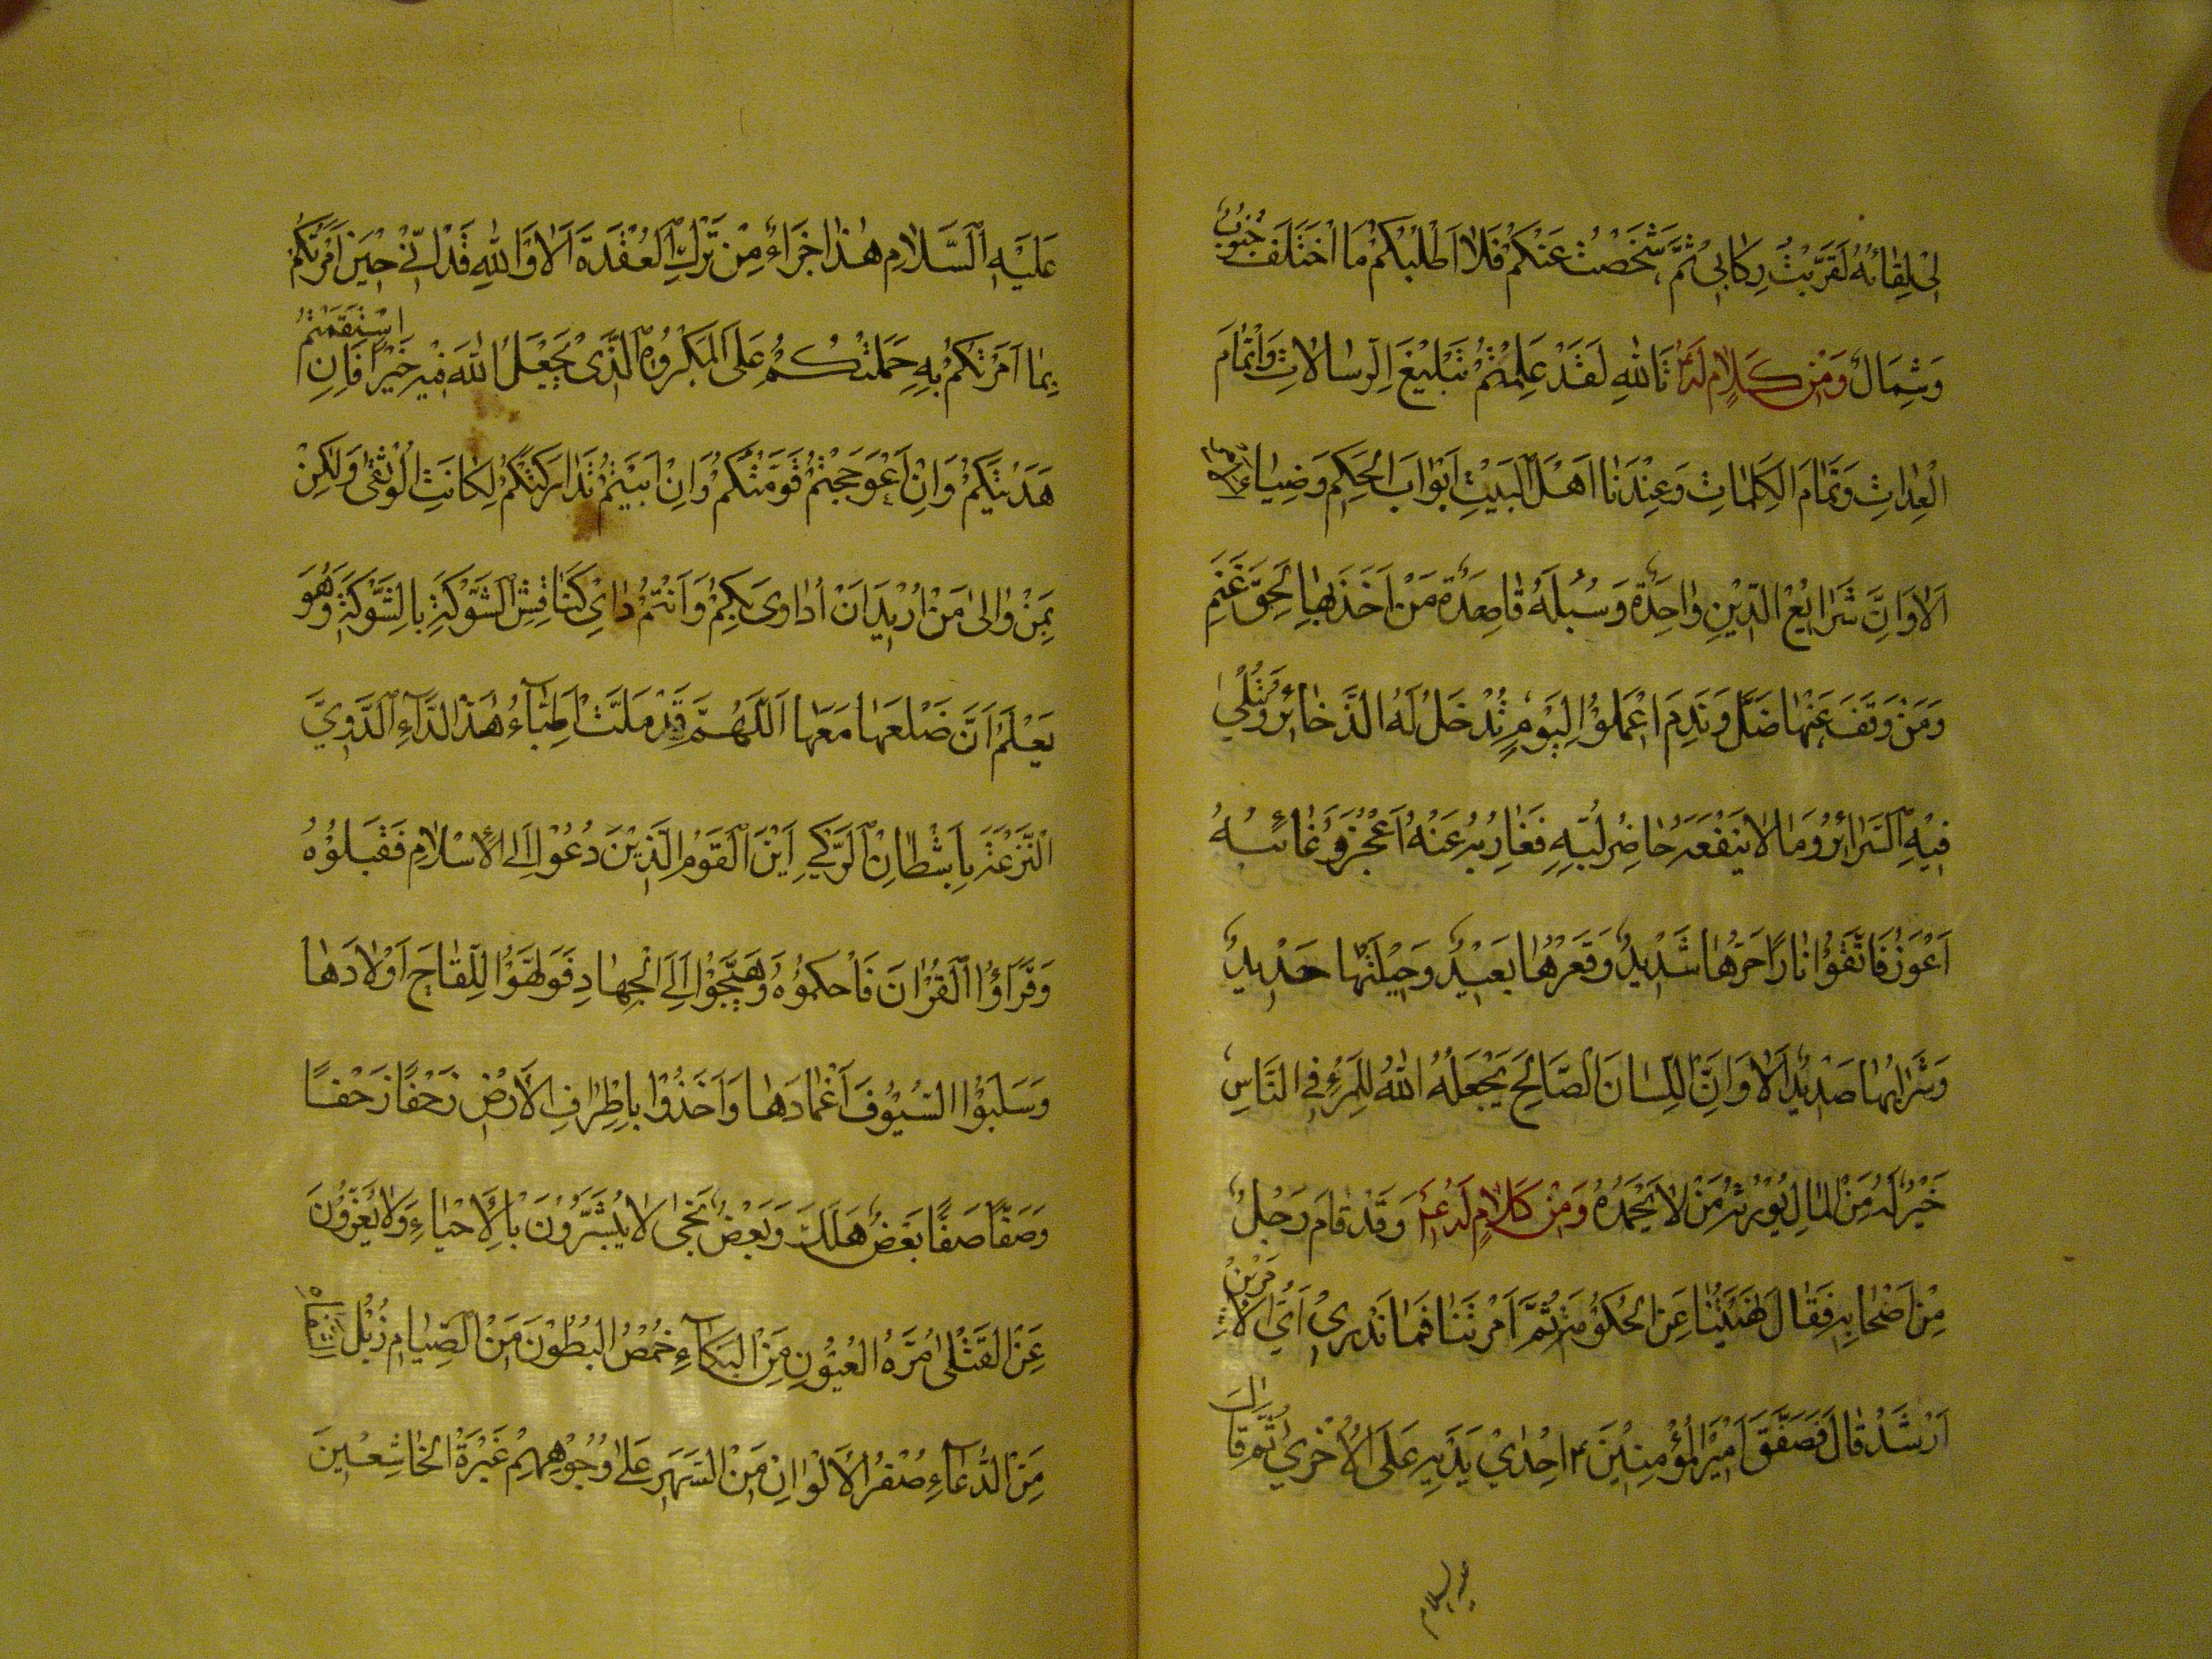 لِي لِقَاؤُهُ لَقَرَّبْتُ رِكَابِي ثُمَّ شَخَصْتُ عَنْكُمْ فَلَا أَطْلُبُكُمْ مَا اخْتَلَفَ جَنُوبٌ
وَشِمَالٌ وَمِنْ كَلَامٍ لَهُ تَاللهِ لَقَدْ عَلِمْتُمْ تَبْلِيغَ الرِسَالَاتِ وَإِتْمَامَ
الْعِدَاتِ وَتَمَامَ الْكَلِمَاتِ وَعِنْدَنَا أَهْلَ الْبَيْتِ أَبْوَابَ الْحِكَمِ وَضِيَاءُ الْأَمْرِ
أَلَا وَإِنَّ شَرَايِعَ الدِّينِ وَاحِدَةٌ وَسُبُلَهُ قَاصِدَةٌ مَنْ أَخَذَ بِهَا لَحِقَ غَنِمَ
وَمَنْ وَقَفَ عَنْهَا ضَلَّ وَنَدِمَ اعْمَلُوا لِيَوْمٍ تُدْخَلُ لَهُ الذَّخَائِرُ وَتُبْلَى
فِيهِ السَّرَائِرُ وَمَا لَا يَنْفَعُهُ حَاضِرُ لُبِّهِ فَعَازِبُهُ عَنْهُ أَعْجَزُ وَغَائِبُهُ
أَعْوَزُ فَاتَّقُوا نَارًا حَرُّهَا شَدِيدٌ وَقَعْرُهَا بَعِيدٌ وَحِيلَتُهَا حَدِيدٌ
وَشَرَابُهَا صَدِيدٌ أَلَا وَإِنَّ اللِّسَانَ الصَّالِحَ يَجْعَلُهُ اللهُ لِلْمَرْءِ فِي النَّاسِ
خَيْرٌ لَهُ مِنَ الْمَالِ يُوْرِثُهُ مَنْ لَا يَحْمَدُهُ وَمِنْ كَلَامٍ لَهُ ع وَقَدْ قَامَ رَجُلٌ
مِنْ أَصْحَابِهِ فَقَالَ نَهَيْتَنَا عَنِ الْحُكُومَةِ ثُمَّ أَمَرْتَنَا فَمَا نَدْرِي أَيُّ الْأَمْرَيْنِ
أَرْشَدُ قَالَ فَصَفَّقَ أَمِيرُ الْمُؤْمِنِينَ ع إِحْدَى يَدَيْهِ عَلَى الْأُخْرَى ثُمَّ قَالَ
عليه السلام
عَلَيْهِ السَّلَامِ هٰذَا جَزَاءُ مَنْ تَرَكَ الْعُقْدَةَ أَلَا وَاللهِ قَدْ اَنِّي حِينَ أَمَرْتُكُمْ
بِمَا أَمَرْتُكُمْ بِهِ حَمَلْتُكُمْ عَلَى الْمَكْرُوهِ الَّذِي يَجْعَلُ اللهُ فِيهِ خَيْرًا فَإِنِ اسْتَقَمْتُمْ
هَدَيْتُكُمْ وَإِنْ اعْوَجَجْتُمْ قَوَّمْتُكُمْ وَإِنْ أَبَيْتُمْ تَدَارَكْتُكُمْ لَكَانَتِ الْوُثْقَى وَلَكِنْ
بِمَنْ وَإِلَى مَنْ أُرِيدُ أَنْ أُدَاوِيَ بِكُمْ وَأَنْتُمْ دَائِي كَنَاقِشِ الشَّوْكَةِ بِالشَّوْكَةِ وَهُوَ
يَعْلَمُ أَنَّ ضَلْعَهَا مَعَهَا اَللّٰهُمَّ قَدْ مَلَّتْ أَطِبَّاءُ هٰذَا الدَّاءِ الدَّوِيَّ
النَّزَعَةُ بِأَشْطَانِ الرَّكِيِّ أَيْنَ الْقَوْمُ الَّذِينَ دُعُوا إِلَى الْإِسْلَامِ فَقَبِلُوهُ
وَقَرَأُوا الْقُرْآنَ فَأَحْكَمُوهُ وَهِيجُوا إِلَى الْجِهَادِ فَوَلَّهُوا اللِّقَاحَ أَوْلَادَهَا
وَسَلَبُوا السُّيُوفَ أَغْمَادَهَا وَأَخَذُوا بِأَطْرَافِ الْأَرْضِ زَحْفًا زَحْفًا
وَصَفًّا صَفًّا بَعْضٌ هَلَكَ وَبَعْضٌ نَجَى لَا يُبَشَّرُونَ بِالْأَحْيَاءِ وَلَا يُعَزَّوْنَ
عَنِ الْقَتْلَى مُرْهُ الْعُيُونِ مِنَ الْبُكَاءِ خُمْصُ الْبُطُونِ مِنَ الصِّيَامِ ذُبُلُ الشِّفَاهِ
مِنَ الدُّعَاءِ صُفْرُ الْأَلْوَانِ مِنَ السَّهَرِ عَلَى وُجُوهِهِمْ غَبَرَةُ الْخَاشِعِينَ